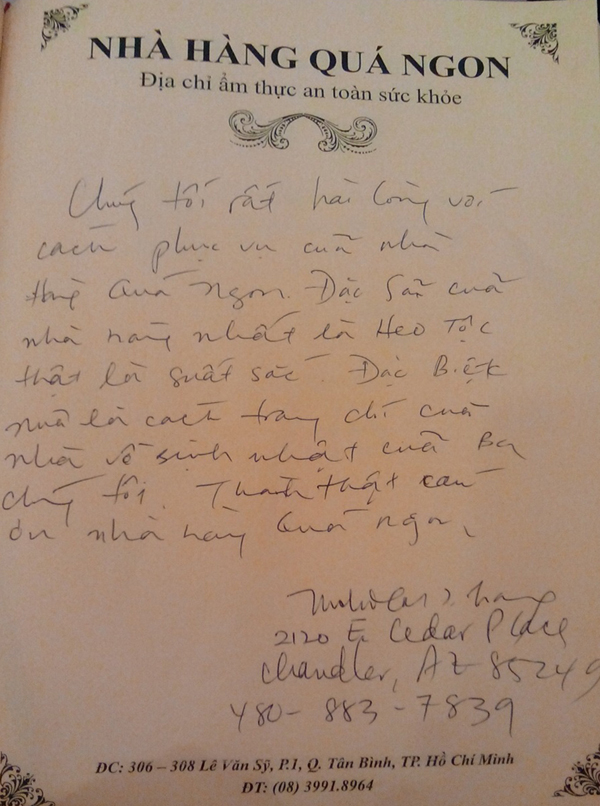 NHÀ HÀNG QUÁ NGON
Địa chỉ ẩm thực an toàn sức khỏe
Chúng tôi rất hài lòng với
cách phục vụ cuả nhà
Hàng Quá Ngon. Đặc Sản cuả
nhà hàng nhất là Heo Tộc
thật là suất sắc. Đặc Biệt
nuã là cách trang chí cuả
nhà về sinh nhật cuả Ba
chúng tôi. Thành thật cám
ơn nhà hàng Quá ngon.
2120 E. Cedar Place
Chandler, AZ 85249
480-883-7839
ĐC: 306 – 308 Lê Văn Sỹ, P.1, Q. Tân Bình, TP. Hồ Chí Minh
ĐT: (08) 3991.8964